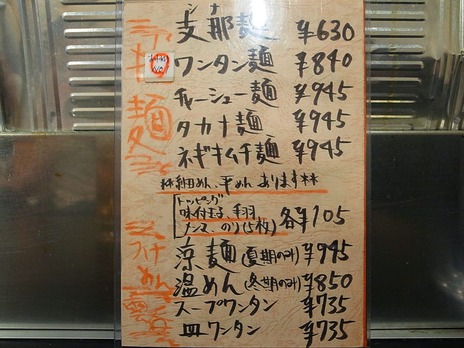 シナ
支那麺 ¥630
ワンタン麺 ¥840
チャーシュー麺 ¥945
タカナ麺 ¥945
ネギキムチ麺 ¥945
**細めん、平めんあります**
トッピング
味付玉子、手羽
メンマ、のり(5枚) 各¥105
涼麺(夏期のみ) ¥945
温めん(冬期のみ) ¥850
スープワンタン ¥735
皿ワンタン ¥735
麺